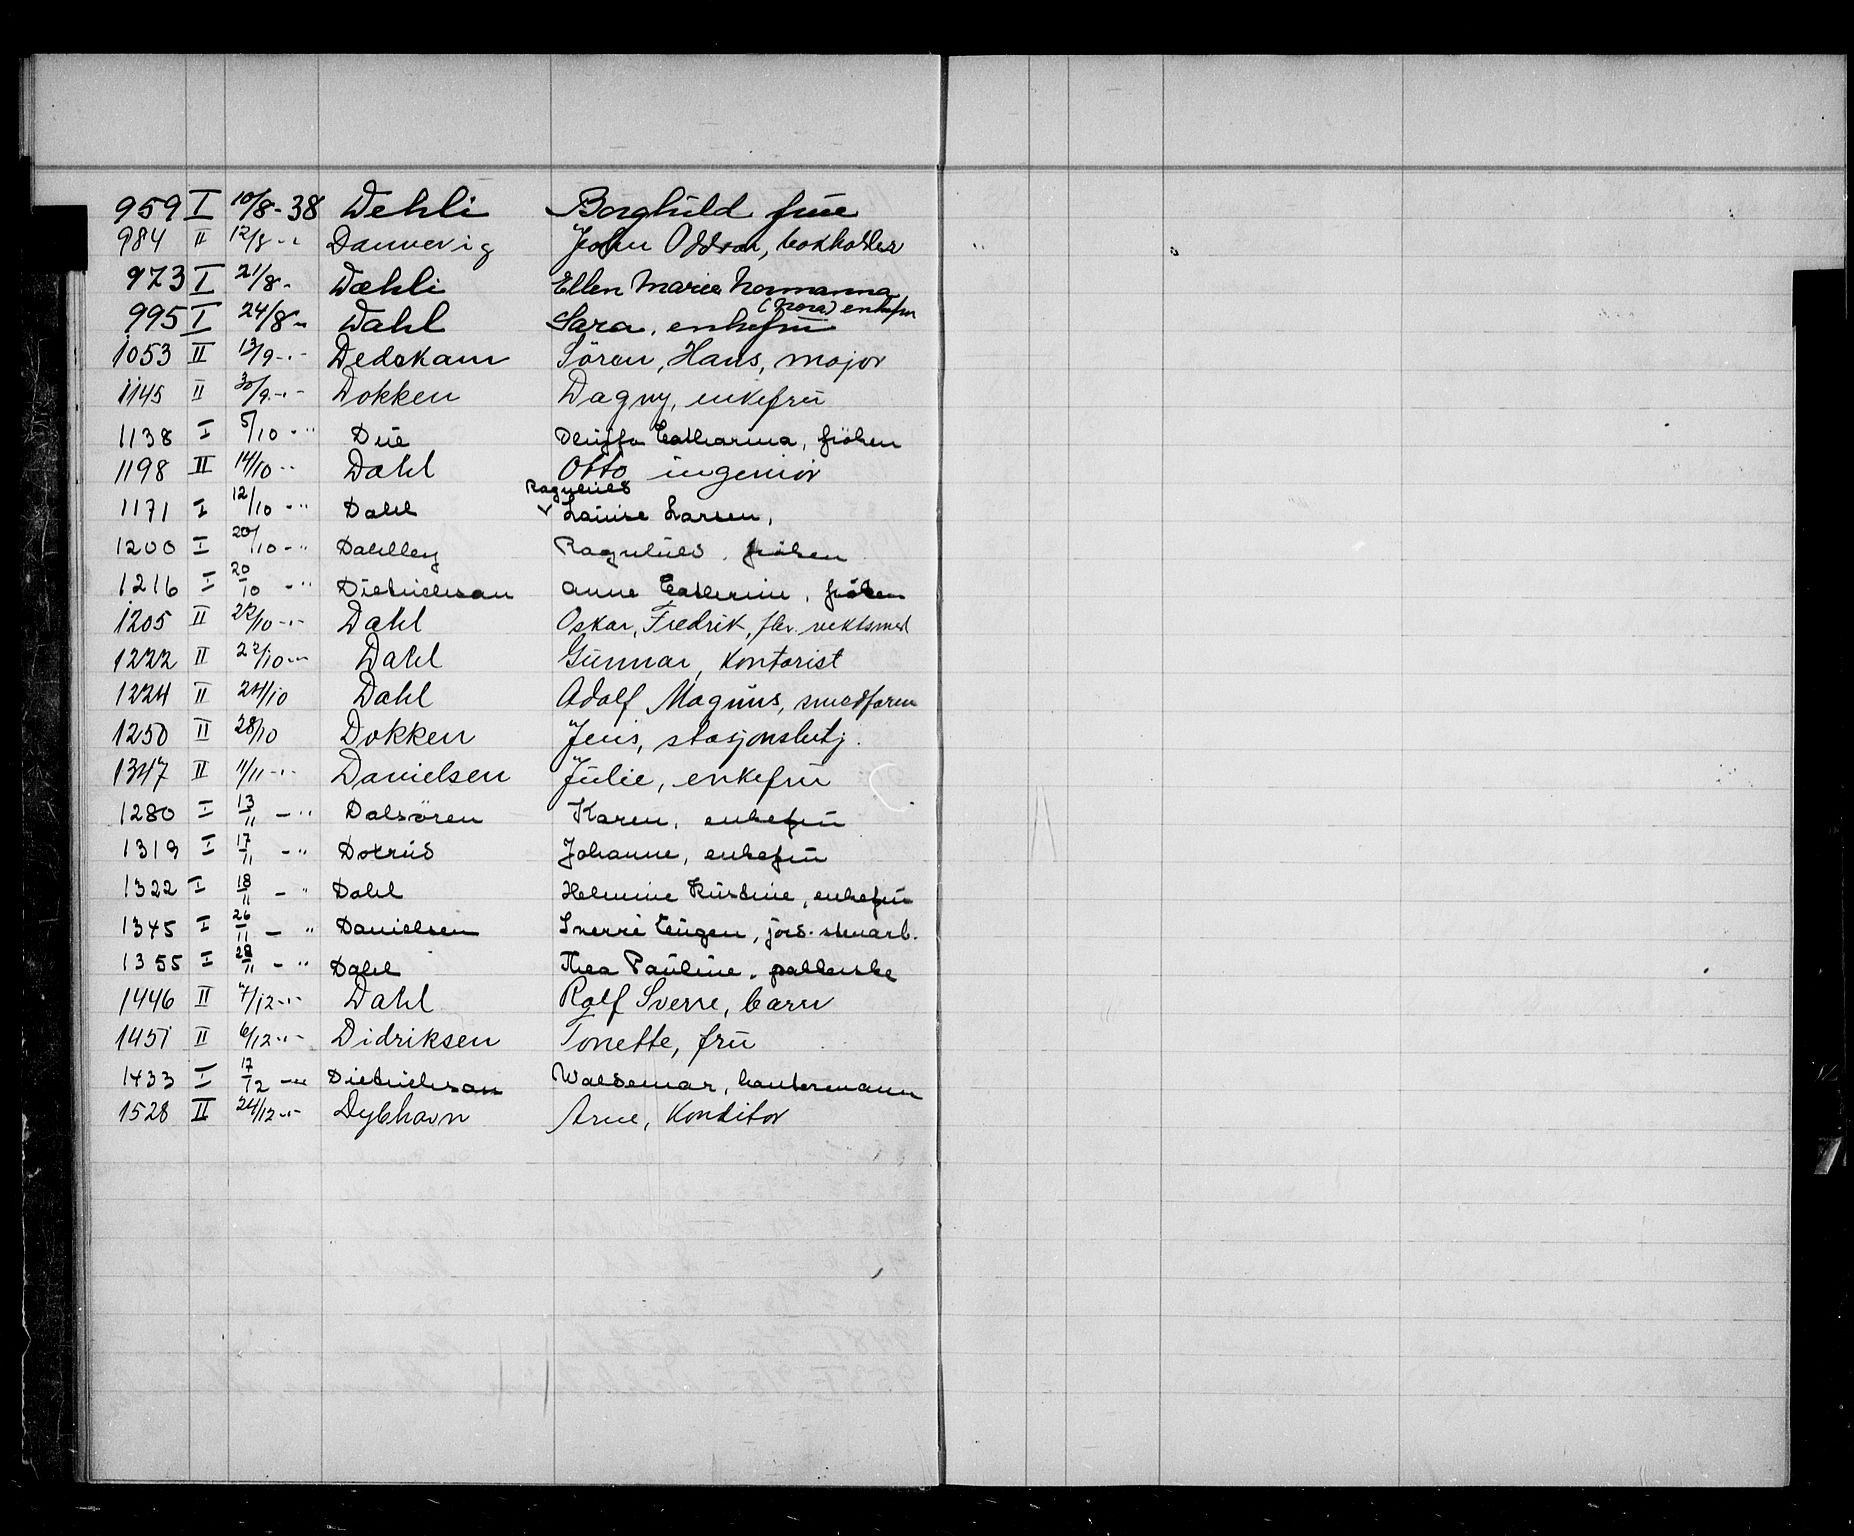 959 I 10/8-38 Dehli Borghild frue
984 II 12/8 -"- Danvevig John Oddvar, bokholder
973 I 21/8 - Dæhli Ellen Marie Normanna
(Nora) enkefru
995 I 24/8 -"- Dahl Sara, enkefru
1053 II 13/9 -"- Dedekam Sören, Hans, major
1145 II 30/9 -"- Dokken Dagny, enkefru
1138 I 5/10 -"- Due Catharina, fröken
1198 II 14/10 -"- Dahl Otto ingeniör
Ragnhild
1171 I 12/10 -"- Dahl Louise Larsen,
1200 I 20/10 -"- Dahlby Ragnhild, fröken
1216 I 20/10 -"- Dietrichson Anne Catherine, fröken
1205 II 22/10 -"- Dahl Oskar, Fredrik, fhv. vektsmed
1222 II 22/10 -"- Dahl Gunnar, Kontorist
1224 II 24/10 Dahl Adolf Magnus, smedform
1250 II 28/10 Dokken Jens, stasjonsbetj.
1347 II 11/11 -"- Danielsen Julie, enkefru
1280 I 13/11 -"- Dalsören Karen, enkefru
1319 I 17/11 -"- Johanne, enkefru
1322 I 18/11 -"- Dahl Helmine Kirstine, enkefru
1345 I 26/11 -"- Danielsen Sverre Eugen, jord. stenarb.
1355 I 28/11 -"- Dahl Thea Pauline, pakkerske
1446 II 7/12 -"- Dahl Rolf Sverre, barn
1451 II 6/12 -"- Didriksen Tonette, fru
1433 I 17/12 -"- Dietrichson Waldemar, kontormann
1528 II 24/12 -"- Dybhavn Arne, Konditor